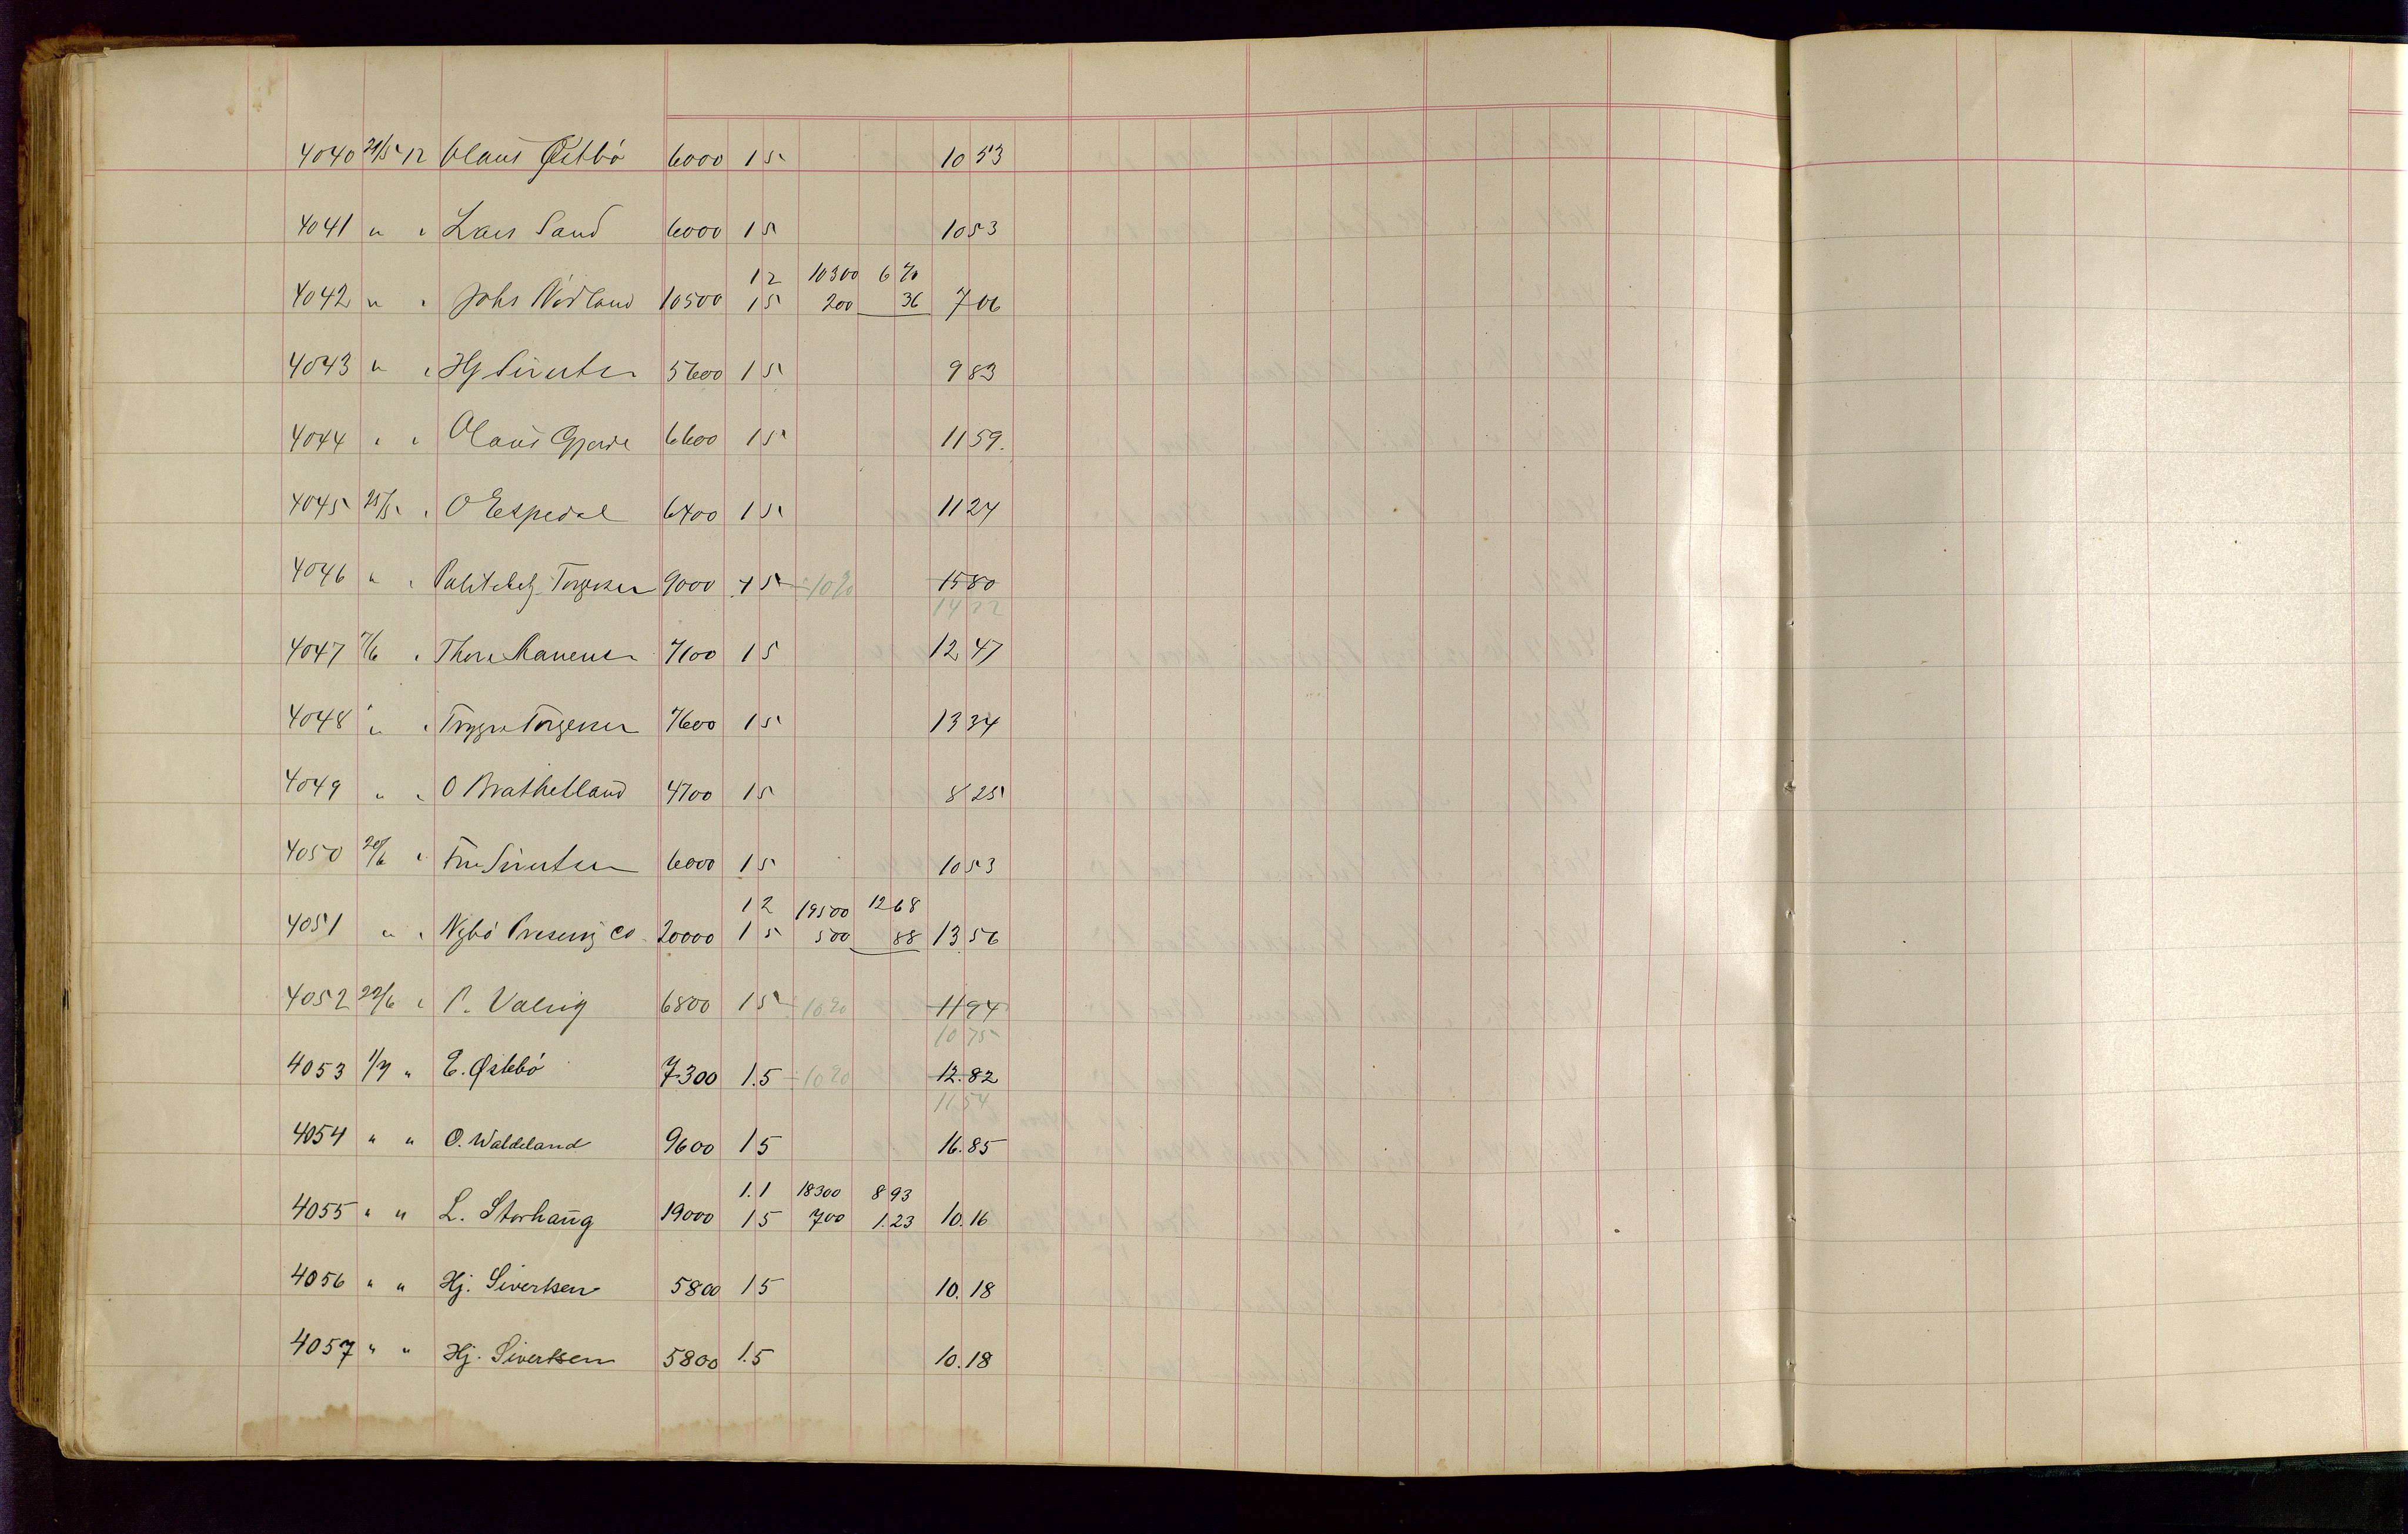 4040 21/5 12 Olaus Østbö 6000 15 10 53
4041 " " Lars Sand 6000 15 10 53
12 10300 6 70
4042 " " Johs Nödland 10500 15 200 36 7 06
4043 " " Hj Sivertsen 5600 15 9 83
4044 " " Olaus Gjerde 6600 15 11 59.
4045 25/5 " O Espedal 6400 15 11 24
4046 " " Politibetj. Torgersen 9000 15 ÷ 10% 15 80
14 22
4047 7/6 " 7100 15 12 47
4048 " " Trygve Torgersen 7600 15 13 34
4049 " " O Brathetland 4700 15 8 25
4050 20/6 " Sivertsen 6000 15 10 53
12 19500 12 68
4051 " " Nybö Preserving Co. 20000 15 500 88 13 56
4052 22/6 " P. 6800 15 ÷ 10% 11 94
10 75
4053 1/7 " E. Østebö 7300 1.5 ÷ 10% 12.82
11.54
4054 " " O. Waldeland 9600 15 16.85
1.1 18300 8 93
4055 " " L. Storhaug 19000 15 700 1.23 10.16
4056 " " Hj. Sivertsen 5800 15 10.18
4057 " " Hj. Sivertsen 5800 1.5 10.18